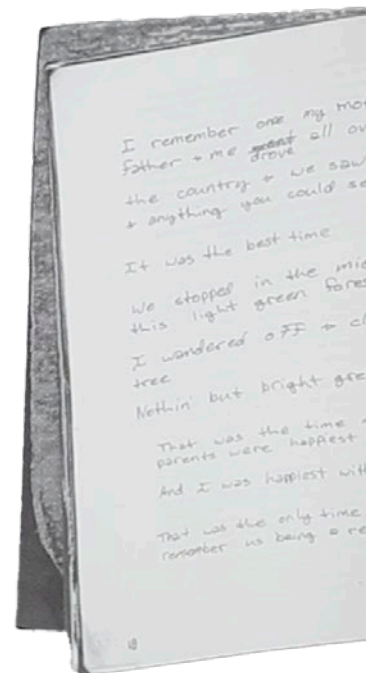 I remember one my mo
father + me went all ov
drove
the country + we saw
+ anything you could se
It was the best time
We stopped in the mid
this light green fores
I wandered off + cl
tree
Nothin' but bright gre
That was the time
parents were happiest
And I was happiest with
That was the only time
remember us being a re